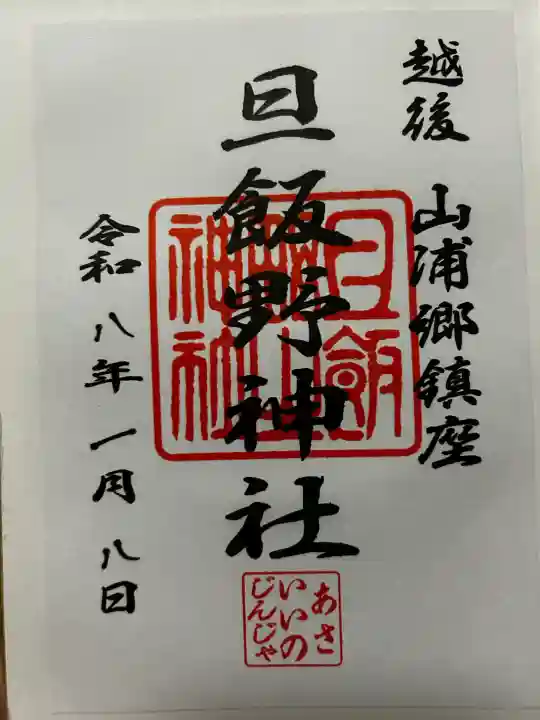 越後 山浦郷鎮座
旦飯野神社
旦飯
野
神社
令和八年一月八日
あさ
いいの
じんじゃ